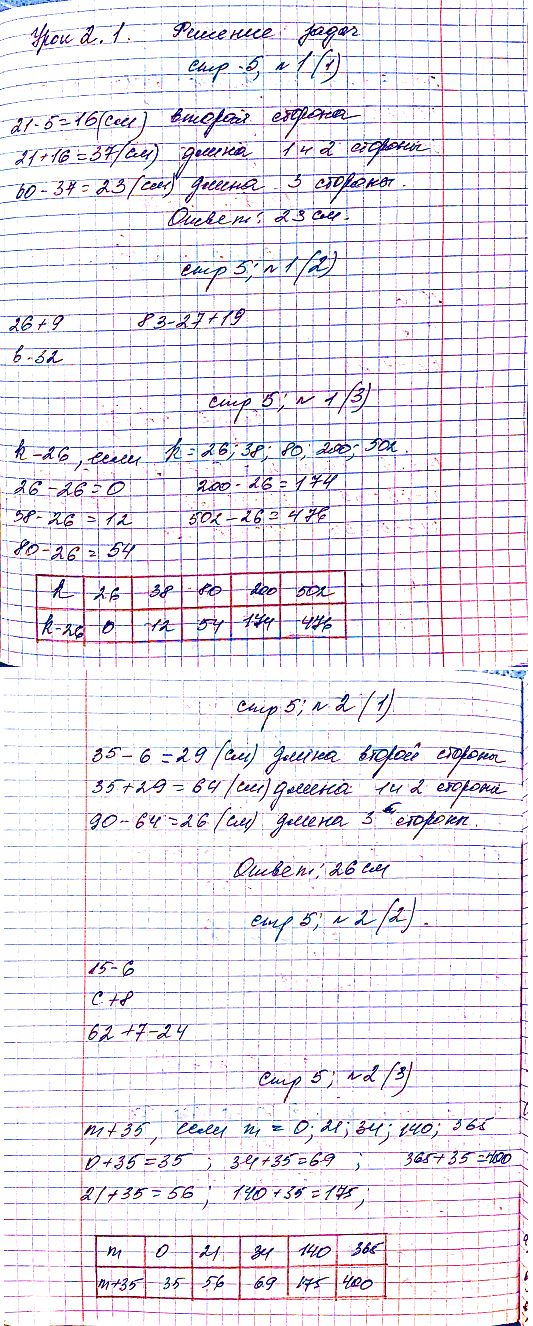 Урок 2.1. Решение задач
стр. 5; № 1 (1)
21-5=16(см) второй сторона
21+16=37(см) длина 1 и 2 стороны
60-37=23(см) длина 3 стороны.
Ответ: 23 см.
стр 5; № 1 (2)
26+9 83-27+19
b-32
стр 5; № 1 (3)
k-26, если k=26; 38; 80; 200; 502.
26-26=0 200-26=174
38-26=12 502-26=476
80-26=54
k 26 38 80 200 502
k-26 0 12 54 174 476
стр 5; № 2 (1)
35-6=29 (см) длина второй стороны
35+29=64 (см) длина 1 и 2 стороны
90-64=26 (см) длина 3 стороны.
Ответ: 26 см
стр 5; № 2 (2).
15-6
c+8
62+7-24
стр 5; № 2 (3)
m+35, если m=0; 21; 34; 140; 365
0+35=35; 34+35=69; 365+35=400
21+35=56; 140+35=175;
m 0 21 34 140 365
m+35 35 56 69 175 400